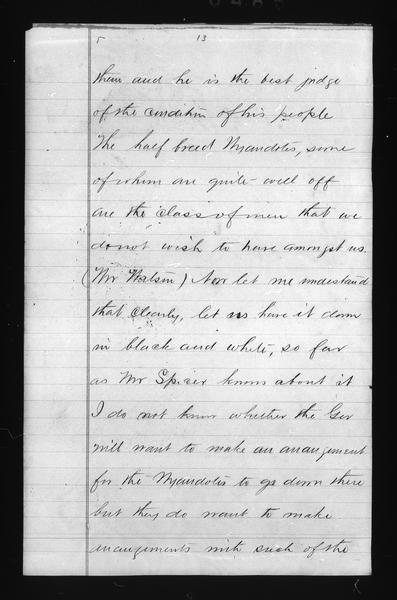 5 13
them and he is the best judge
of the condition of his people
The half breed Wyandotts, some
of whom are quite well off
are the class of men that we
do not wish to have amongst us.
(Mr Watson) Now let me understand
that clearly, let us have it down
in black and white, so far
as Mr Spicer knows about it
I do not know whether the Gov
will want to make an arrangement
for the Wyandotts to go down there
but they do want to make
arrangements with such of the